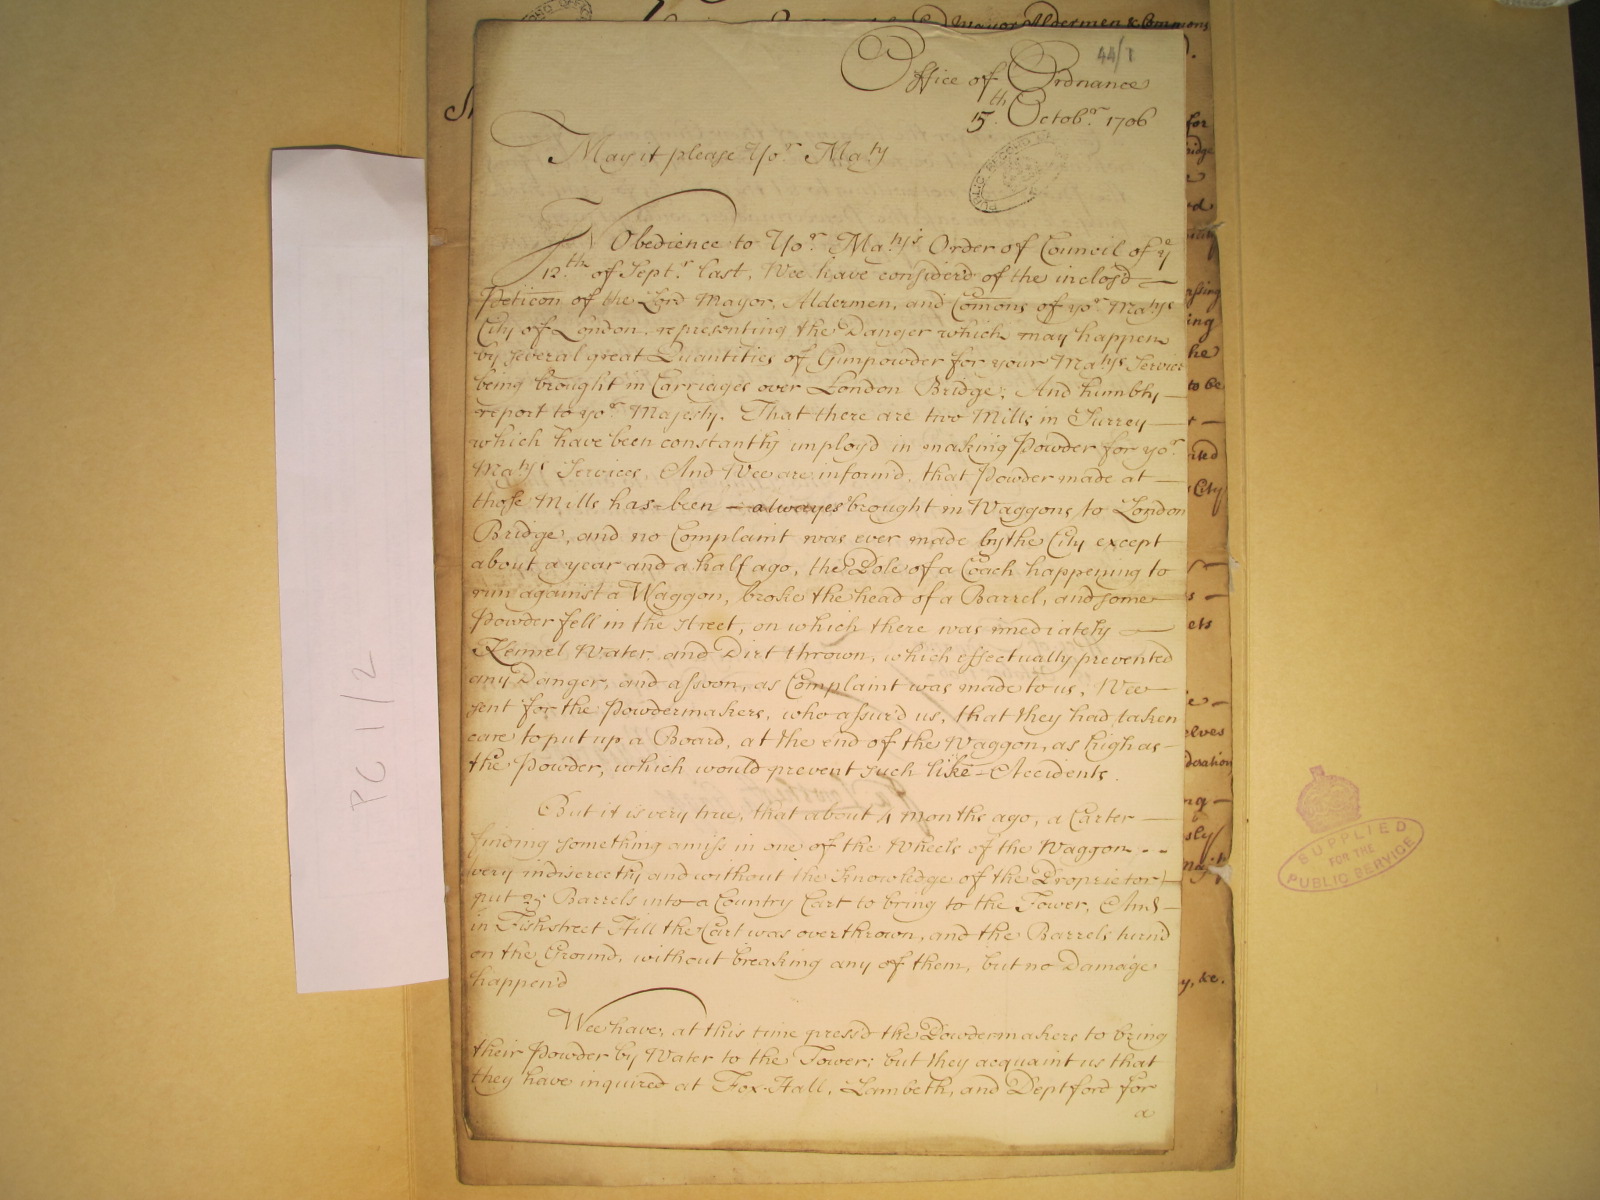 Mayor Aldermen & Commons
44/1
Office of Ordnance
15th. Octobr. 1706
May it please Yor. Maty
PUBLIC RECORD
IN Obedience to Yor. Matys Order of Council of ye
12th. of Septr. last, Wee have consider'd of the inclos'd
Peticon of the Lord Mayor, Aldermen, and Comons of yor. Matys
City of London, representing the Danger which may happen
by several great Quantities of Gunpowder for your Matys Service
being brought in Carriages over London Bridge; And humbly
report to yor. Majesty. That there are two Mills in Surrey
which have been constantly imploy'd in making Powder for yor.
Matys Services, And Wee are inform'd, that Powder made at
those Mills has been always brought in Waggons to London
Bridge, and no Complaint was ever made by the City except
about a year and a half ago, the Pole of a Coach happening to
run against a Waggon, broke the head of a Barrel, and some
Powder fell in the street, on which there was imediately
Kennel Water, and Dirt thrown, which effectually prevented
any Danger, and assoon, as Complaint was made to us, Wee
sent for the Powdermakers, who assur'd us, that they had taken
care to put up a Board, at the end of the Waggon, as high as
the Powder, which would prevent such like Accidents.
But it is very true, that about 4 months ago, a Carter
finding something amiss in one of the Wheels of the Waggon
very indiscreetly and without the Knowledge of the Proprietor
put 25 Barrels into a Country Cart to bring to the Tower, And
in Fishstreet Hill the Cart was overthrown, and the Barrels turn'd
on the Ground, without breaking any of them, but no Damage
happen'd
Wee have, at this time press'd the Powdermakers to bring
their Powder by Water to the Tower; but they acquaint us that
they have inquired at Fox-Hall, Lambeth, and Deptford for
a
PC 1/2
SUPPLIED
FOR THE
PUBLIC SERVICE